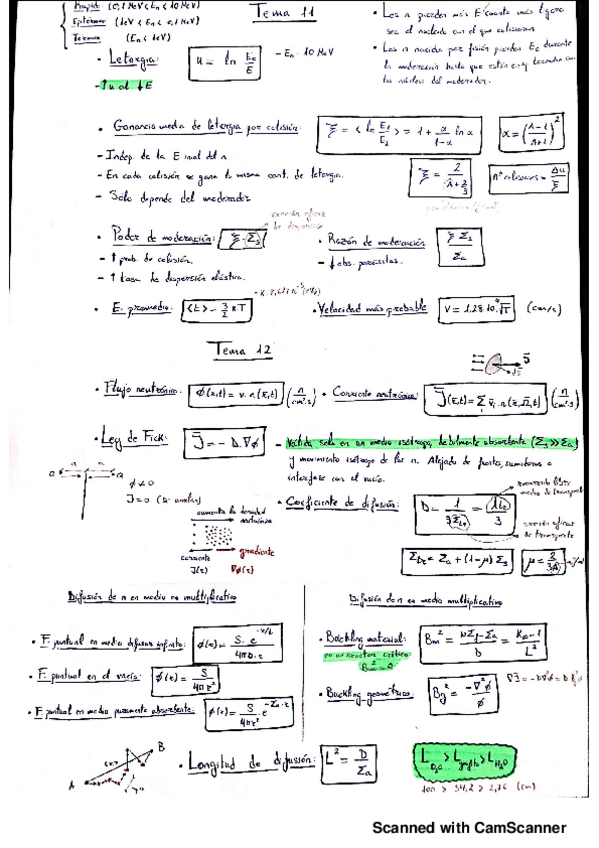 Rápido: (0,1 MeV < En < 10 MeV)
Epitérmico: (1eV < En < 0,1 MeV)
Térmico (En < 1eV)
Tema 11
• Letargia: u = ln E₀/E
- E₀ = 10 MeV
- ↑u al ↓E
• Los n pierden más E cuanto más ligero
sea el núcleo con el que colisionan
• Los n nacidos por fisión pierden Ec durante
la moderación hasta que están en eq. térmico con
los núcleos del moderador.
• Ganancia media de letargia por colisión: ξ = < ln E₁/E₂ > = 1 + α/(1-α) ln α
α = ((A-1)/(A+1))²
- Indep. de la E inicial del n
- En cada colisión se gana la misma cant. de letargia.
- Sólo depende del moderador
ξ = 2/(A + 2/3)
nº colisiones = Δu/ξ
sección eficaz
de dispersión
• Poder de moderación: ξ · Σs
- ↑ prob. de colisión.
- ↑ tasa de dispersión elástica.
• Razón de moderación: ξ Σs/Σa
- ↓ abs. parásitas.
• E. promedio: <E> = 3/2 kT
• Velocidad más probable V = 1.28·10⁴ √T (cm/s)
Tema 12
• Flujo neutrónico: ϕ(r,t) = v · n(r,t) (n/cm²·s)
• Corriente neutrónica: J(r,t) = Σ v̄ᵢ · n(r,Ω,t) (n/cm²·s)
• Ley de Fick: J̄ = - D · ∇ϕ
- Válida solo en un medio isótropo, débilmente absorbente (Σs >> Σa)
y movimiento isótropo de los n. Alejado de fuentes, sumideros o
interfase con el vacío.
ϕ ≠ 0
J = 0
aumenta la densidad
neutrónica
corriente
J(r)
gradiente
∇ϕ(r)
• Coeficiente de difusión: D = 1/(3Σtr) = λtr/3
recorrido libre
medio de transporte
sección eficaz
de transporte
Σtr = Σa + (1-μ) Σs
μ = 2/(3A)
Difusión de n en medio no multiplicativo
• F. puntual en medio difusor infinito: ϕ(r) = S · e^(-r/L)/(4πD · r)
• F. puntual en el vacío: ϕ(r) = S/(4πr²)
• F. puntual en medio puramente absorbente: ϕ(r) = S/(4πr²) e^(-Σa · r)
Difusión de n en medio multiplicativo
• Buckling material: Bm² = (νΣf - Σa)/D = (K∞ - 1)/L²
en un reactor crítico:
Bm² = 0
• Buckling geométrico: Bg² = -∇²ϕ/ϕ
A
B
• Longitud de difusión: L² = D/Σa
L D₂O > L grafito > L H₂O
100 > 54,2 > 2,76 (cm)
Scanned with CamScanner